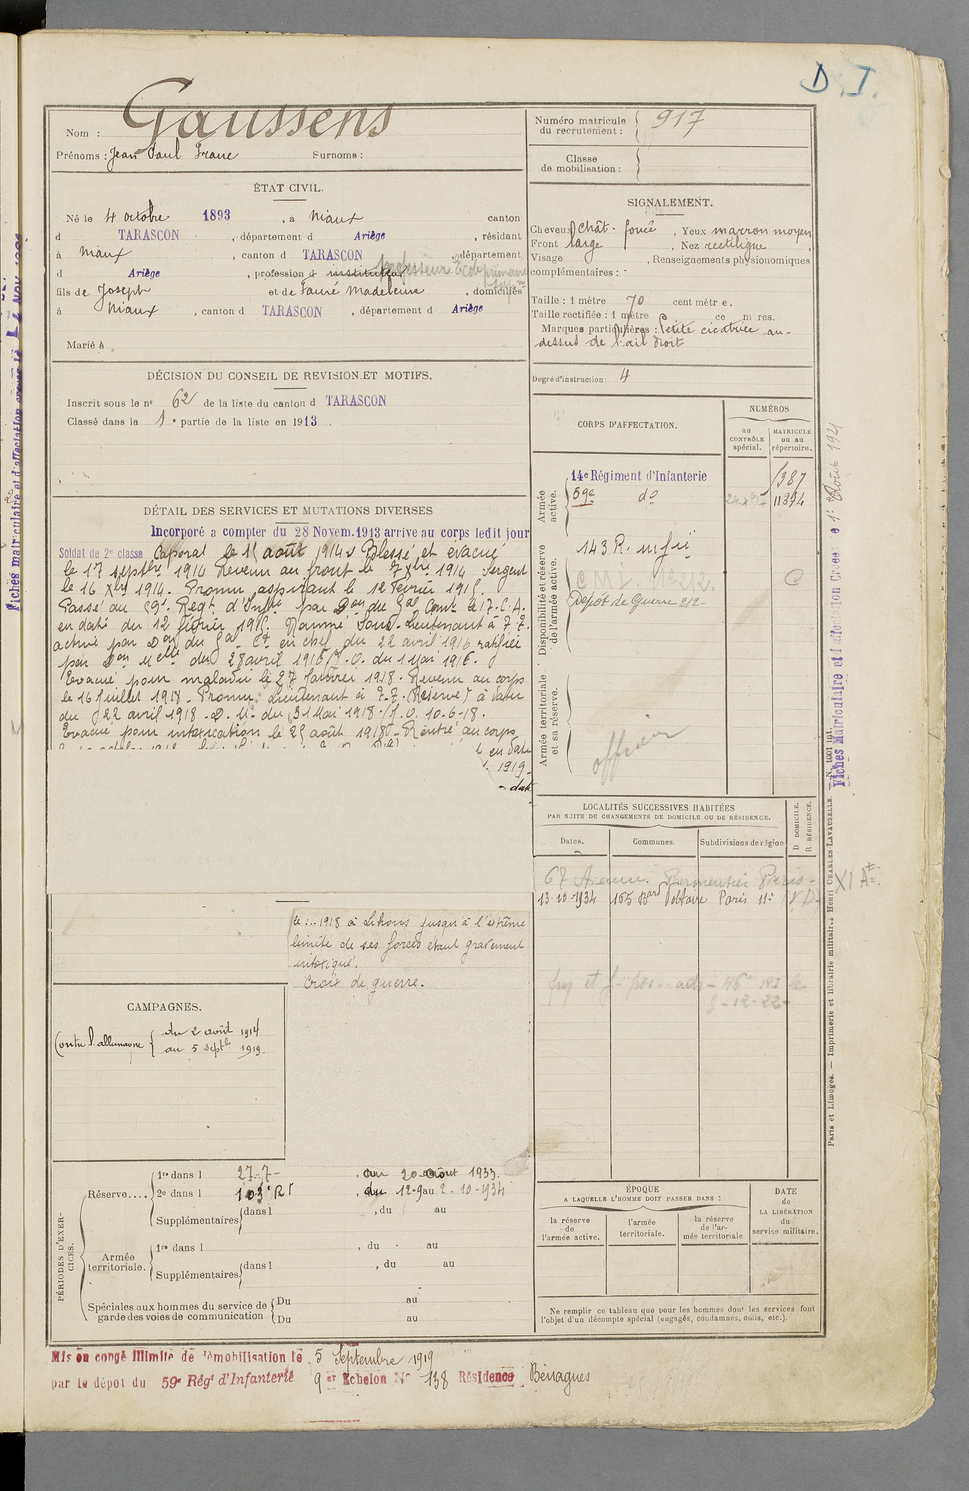 D. I.
Nom : Gaussens
Prénoms : Jean Paul Franc Surnoms :
Numéro matricule du recrutement : 917
Classe de mobilisation :
ÉTAT CIVIL.
Né le 4 octobre 1893, à Niaux canton
d TARASCON, département d Ariège, résidant
à Niaux, canton d TARASCON, département
d Ariège, profession d instituteur professeur École primaire supre
fils de Joseph et de Fauré Madeleine, domiciliés
à Niaux, canton d TARASCON, département d Ariège
Marié à
SIGNALEMENT.
Cheveux chât. foncé, Yeux marron moyen
Front large, Nez rectiligne
Visage, Renseignements physionomiques
complémentaires :
Taille : 1 mètre 70 centimètre.
Taille rectifiée : 1 mètre ce m res.
Marques particulières : Petite cicatrice au-
dessus de l'œil droit
Degré d'instruction : 4
DÉCISION DU CONSEIL DE REVISION ET MOTIFS.
Inscrit sous le no 62 de la liste du canton d TARASCON
Classé dans la 1e partie de la liste en 1913.
DÉTAIL DES SERVICES ET MUTATIONS DIVERSES
Incorporé a compter du 28 Novem. 1913 arrive au corps ledit jour
Soldat de 2e classe Caporal le 11 août 1914 Blessé et évacué
le 17 septbre 1914 Revenu au front le 7 Xbre 1914 Sergent
le 16 Xbre 1914. Promu aspirant le 12 Février 1915.
Passé au 59e Regt d'Infie par Don du Gal Comt le 17e C.A.
en date du 12 février 1915. Nommé Sous-Lieutenant à T.T.
active par Don du Gal Ct en chef du 22 avril 1916 ratifiée
par Don Melle du 28 avril 1916 J.O. du 1 Mai 1916.
Evacué pour maladie le 27 février 1918. Revenu au corps
le 16 Juillet 1918 - Promu Lieutenant à T.T. (Réserve) à dater
du 22 avril 1918. D. M. du 31 Mai 1918 - J.O. 10-6-18.
Evacué pour intoxication le 25 août 1918 - Rentré au corps
en date
1919
date
le ... 1918 à Lihons jusqu'à l'extrême
limite de ses forces étant gravement
intoxiqué.
Croix de guerre.
CORPS D'AFFECTATION.
NUMÉROS
au CONTRÔLE spécial.
MATRICULE ou au répertoire.
Armée active.
14e Régiment d'Infanterie 1387
59e do 11394
Disponibilité et réserve de l'armée active.
143 R. infie
C.M.I. No 212. C
Dépôt de Guerre 212
Armée territoriale et sa réserve.
officier
LOCALITÉS SUCCESSIVES HABITÉES
PAR SUITE DE CHANGEMENTS DE DOMICILE OU DE RÉSIDENCE.
Dates. Communes. Subdivisions de région D DOMICILE. R RÉSIDENCE.
67 Avenue Parmentier Paris - XI At
13-10-1934 165 Bard Voltaire Paris 11e
CAMPAGNES.
Contre l'allemagne { du 2 août 1914
au 5 septbre 1919.
PÉRIODES D'EXERCICES.
Réserve....
1re dans l 27-7- au 20 août 1933
2e dans l 103e RI, du 12-9 au 2-10-1934
Supplémentaires dans l, du au
Armée territoriale.
1re dans l, du au
Supplémentaires dans l, du au
Spéciales aux hommes du service de garde des voies de communication
Du au
Du au
ÉPOQUE
A LAQUELLE L'HOMME DOIT PASSER DANS :
la réserve de l'armée active.
l'armée territoriale.
la réserve de l'armée territoriale
DATE de LA LIBÉRATION du service militaire.
Ne remplir ce tableau que pour les hommes dont les services font
l'objet d'un décompte spécial (engagés, condamnés, omis, etc.).
Mis en congé illimité de démobilisation le 5 Septembre 1919
par le dépôt du 59e Régt d'Infanterie 9er Echelon No 138 Résidence Bénagues
Paris et Limoges. — Imprimerie et librairie militaires Henri CHARLES-LAVAUZELLE. — N. 1001 int.